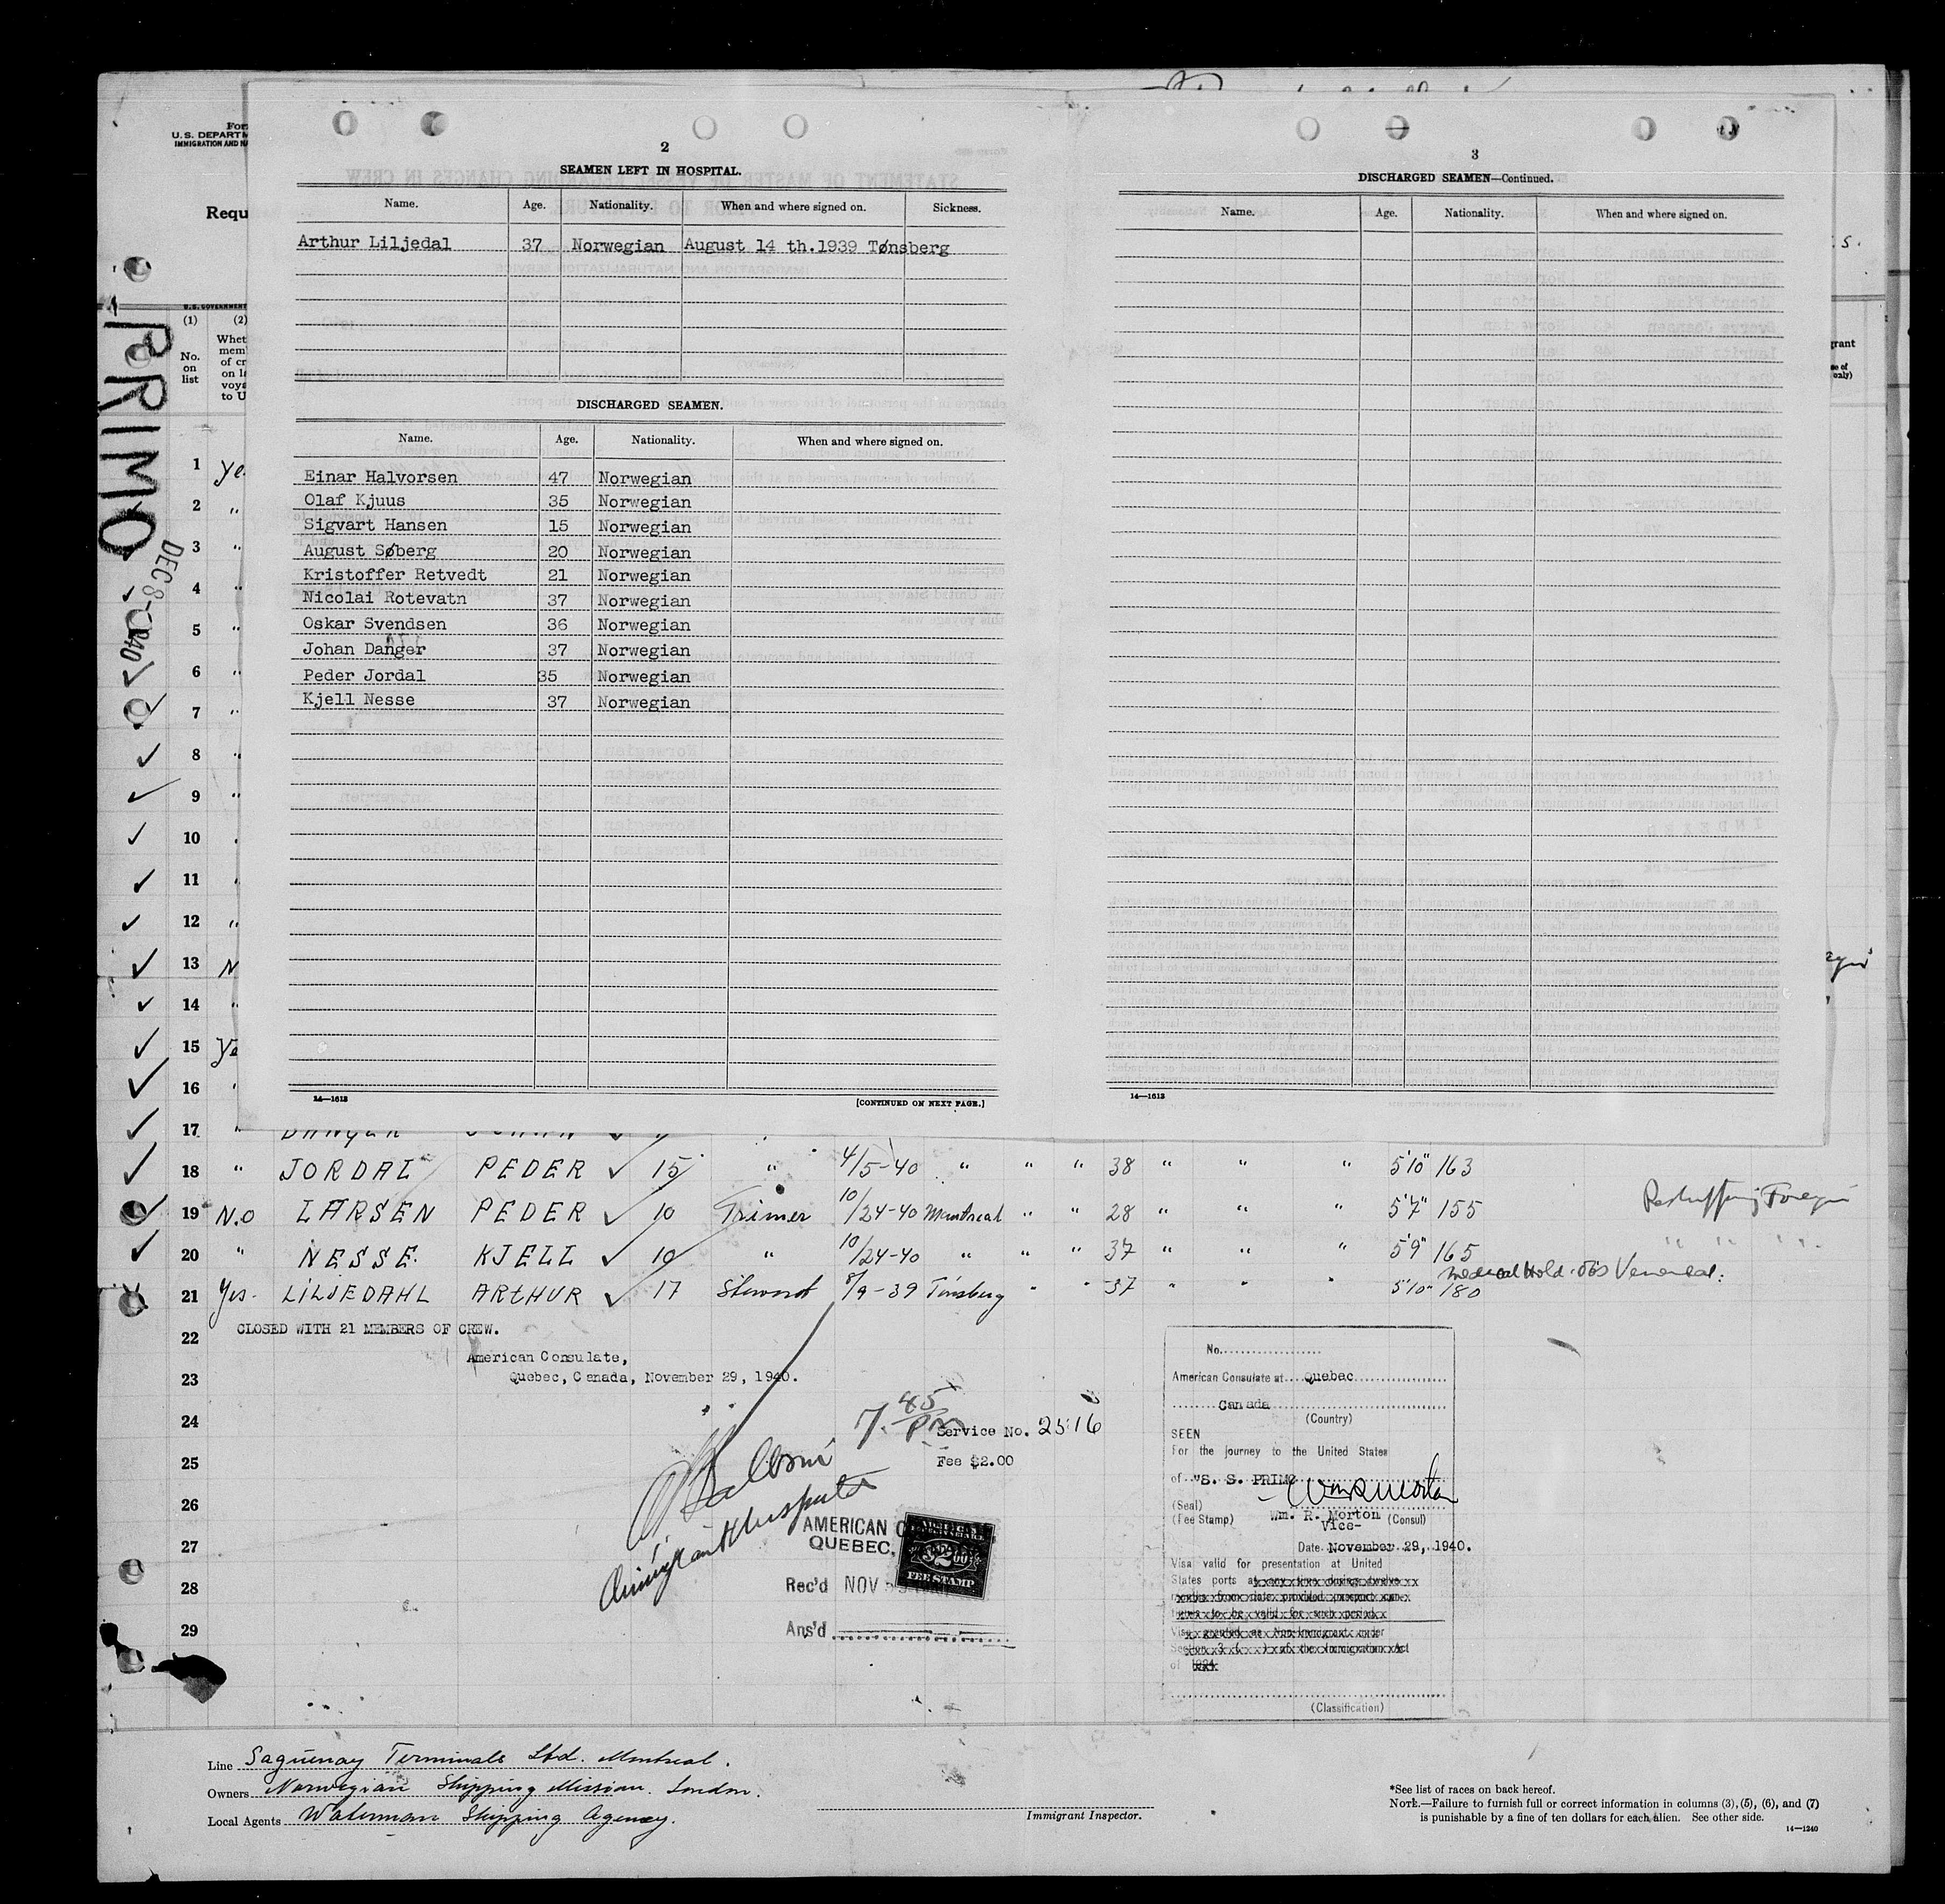 2
SEAMEN LEFT IN HOSPITAL.
Name. Age. Nationality. When and where signed on. Sickness.
Arthur Liljedal 37 Norwegian August 14 th.1939 Tønsberg
DISCHARGED SEAMEN.
Name. Age. Nationality. When and where signed on.
Einar Halvorsen 47 Norwegian
Olaf Kjuus 35 Norwegian
Sigvart Hansen 15 Norwegian
August Søberg 20 Norwegian
Kristoffer Retvedt 21 Norwegian
Nicolai Rotevatn 37 Norwegian
Oskar Svendsen 36 Norwegian
Johan Danger 37 Norwegian
Peder Jordal 35 Norwegian
Kjell Nesse 37 Norwegian
14—1613
[CONTINUED ON NEXT PAGE.]
3
DISCHARGED SEAMEN—Continued.
Name. Age. Nationality. When and where signed on.
14—1613
U. S. DEPARTM
IMMIGRATION AND NA
Requ
U.S. GOVERNMENT
(1) (2)
No.
on
list
Whet
mem
of cr
on la
voya
to U
PRIMO
DEC 8-1940
1 Ye
2 "
3 "
4 "
5 "
6 "
7 "
8 "
9 "
10
11
12 "
13 N
14 "
15 Ye
16 "
17 " DANGER JOHAN
18 " JORDAL PEDER 15 " 4/5-40 " " " 38 " " " 5'10" 163
19 No LARSEN PEDER 10 Trimer 10/24-40 Montreal " " 28 " " " 5'7" 155 Reshipping Foreign
20 " NESSE KJELL 10 " 10/24-40 " " " 37 " " " 5'9" 165 " " "
21 Yes. LILJEDAHL ARTHUR 17 Steward 8/9-39 Tønsberg " " 37 " " " 5'10" 180 Medical Hold Venereal
22 CLOSED WITH 21 MEMBERS OF CREW.
American Consulate,
23 Quebec, Canada, November 29, 1940.
24 7.45 PM
Service No. 2516
25 Fee $2.00
26
Immigrant Inspector
27
28
29
AMERICAN C
QUEBEC,
$2.00
FEE STAMP
Rec'd NOV
Ans'd
No.
American Consulate at Quebec
Canada
(Country)
SEEN
For the journey to the United States
of "S. S. PRIMO
(Seal)
(Fee Stamp) Wm. R. Morton (Consul)
Vice-
Date November 29, 1940.
Visa valid for presentation at United
States ports at any time during twelve
months from date provided passport con-
tinues to be valid for such period.
Visa granted as Non-immigrant under
Section 3 ( ) of the Immigration Act
of 1924
(Classification)
Line Saguenay Terminals Ltd. Montreal.
Owners Norwegian Shipping Mission. London.
Local Agents Waterman Shipping Agency.
Immigrant Inspector.
*See list of races on back hereof.
NOTE.—Failure to furnish full or correct information in columns (3), (5), (6), and (7)
is punishable by a fine of ten dollars for each alien. See other side.
14—1240